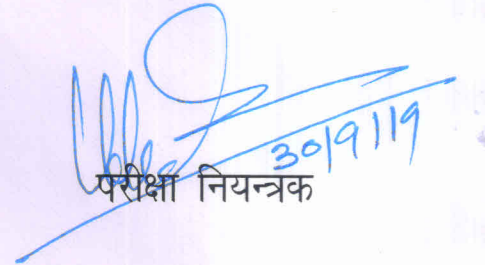 30/9/19
परीक्षा नियन्त्रक